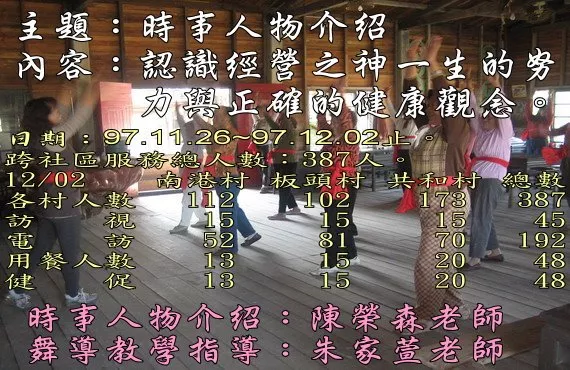 主題：時事人物介紹
內容：認識經營之神一生的努
力與正確的健康觀念。
日期：97.11.26~97.12.02止。
跨社區服務總人數：387人。
12/02 南港村 板頭村 共和村 總數
各村人數 112 102 173 387
訪視 15 15 15 45
電訪 52 81 70 192
用餐人數 13 15 20 48
健促 13 15 20 48
時事人物介紹：陳榮森老師
舞導教學指導：朱家萱老師